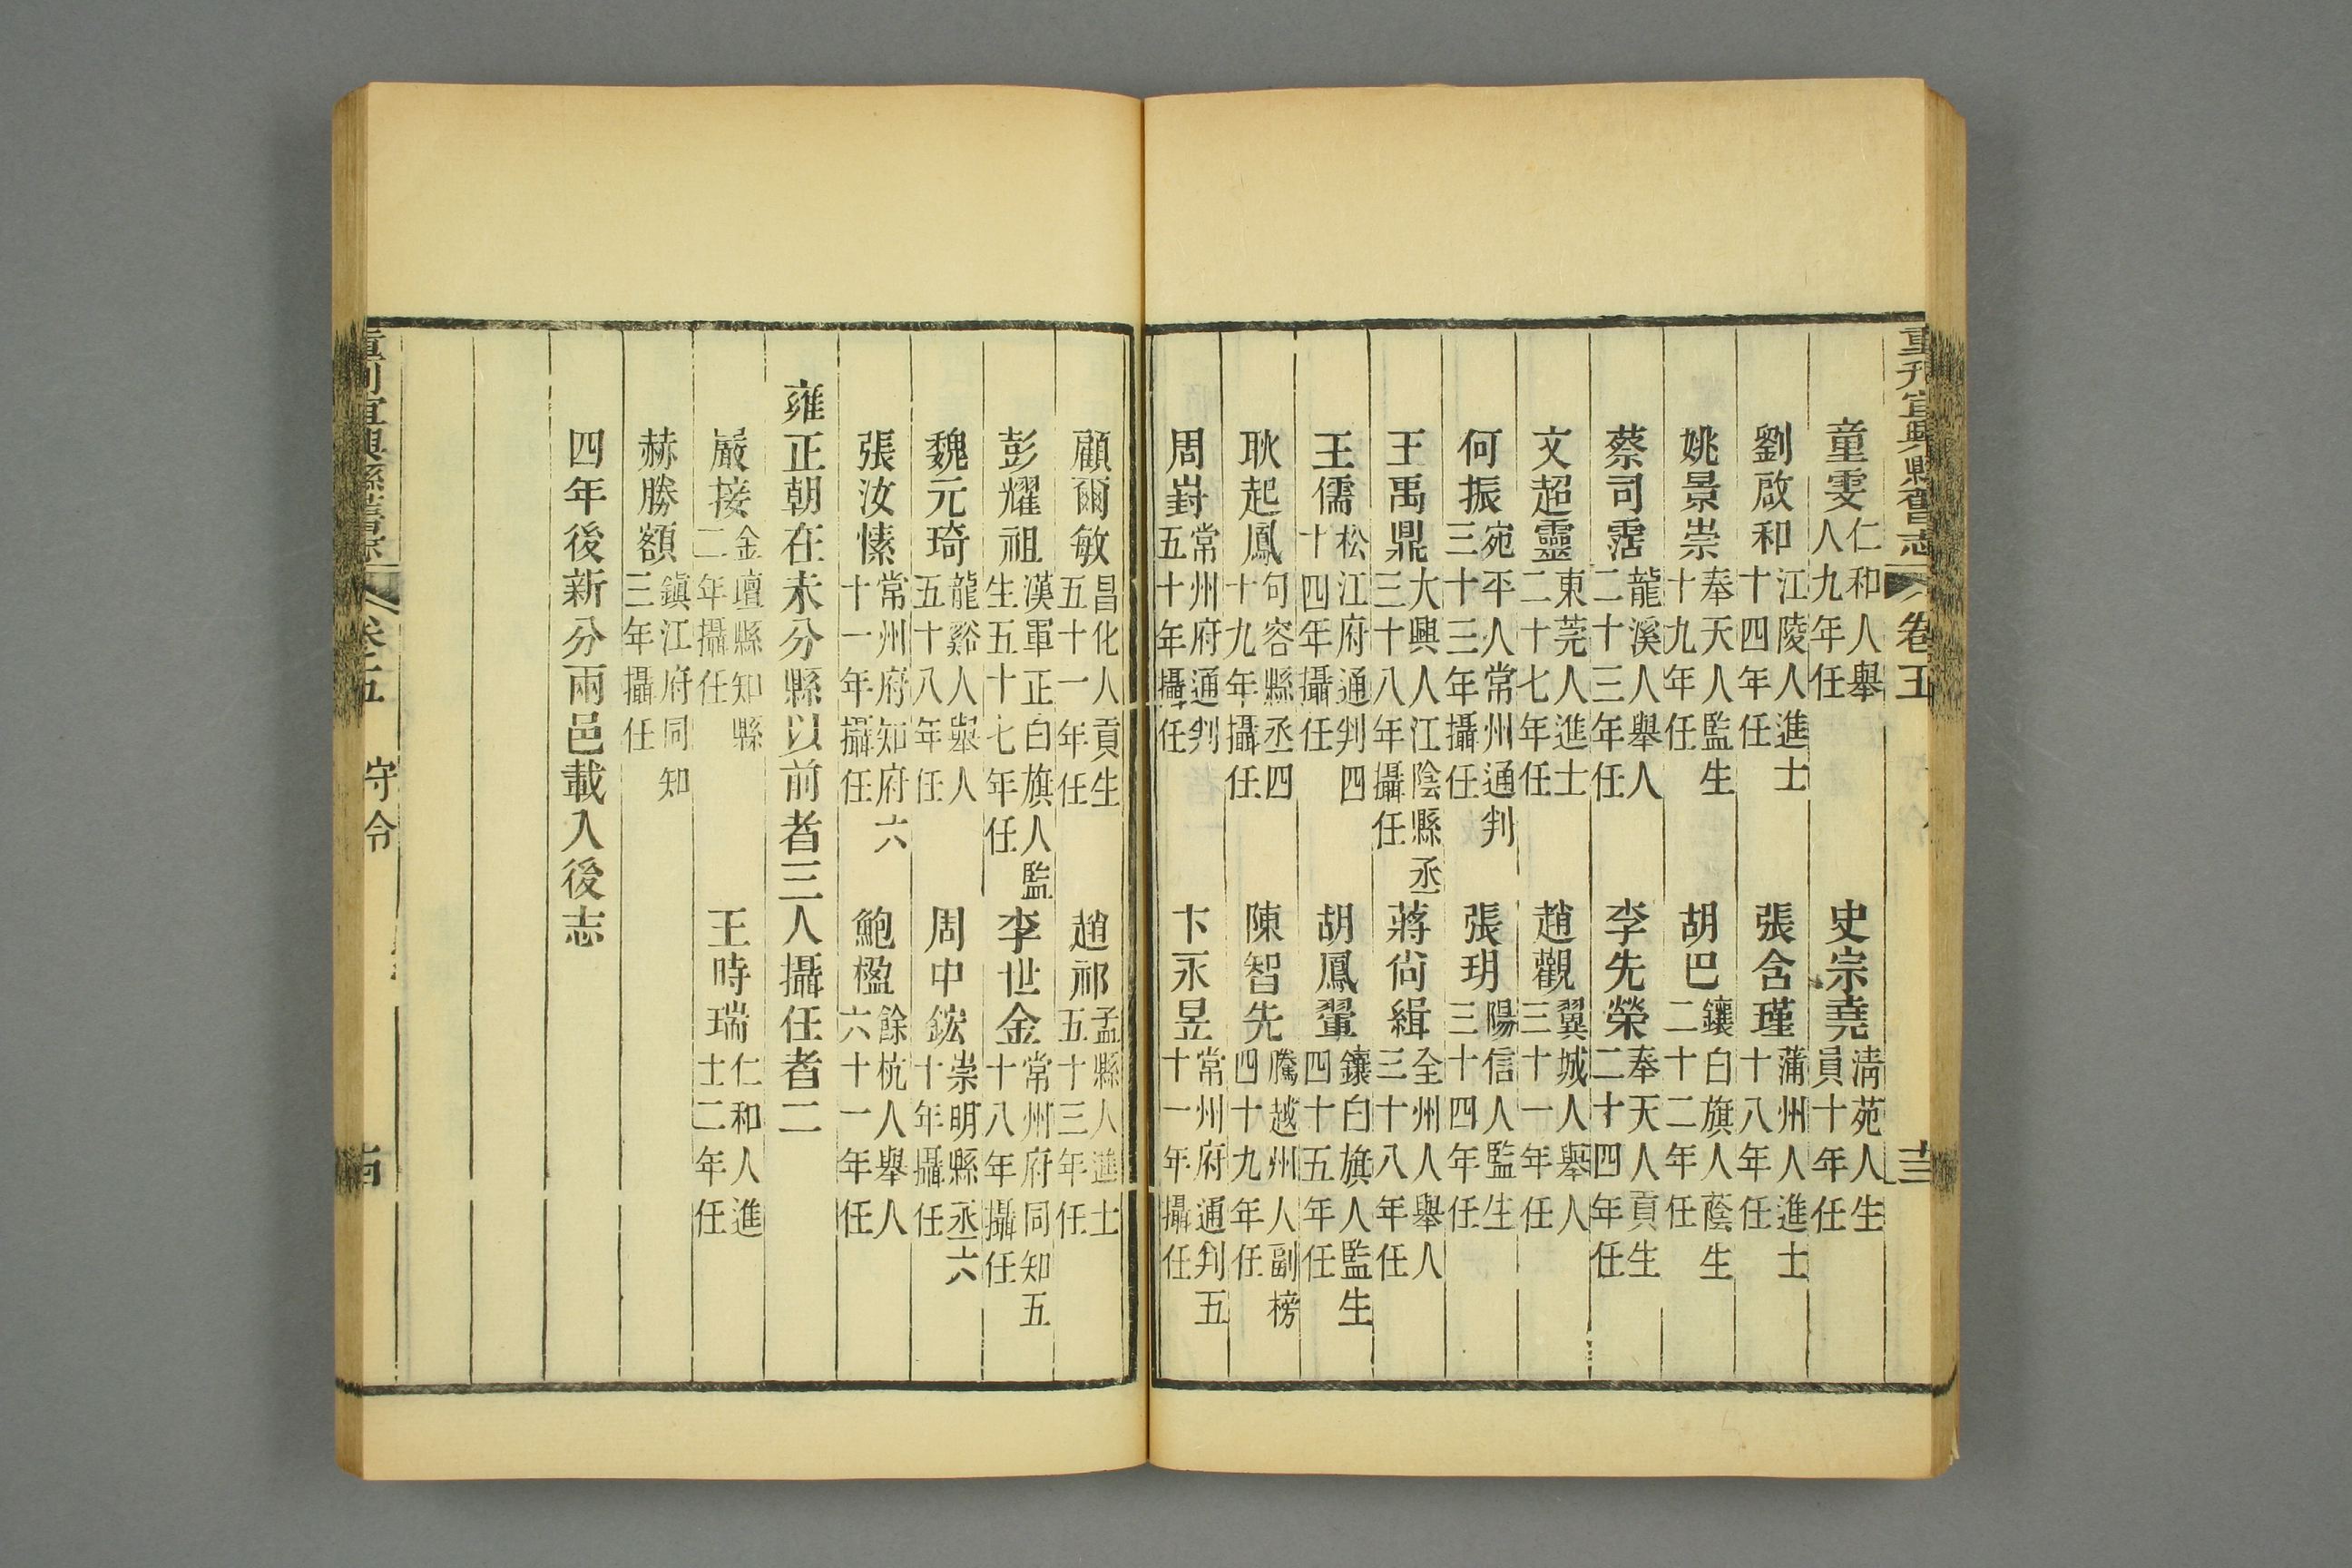 重刋宜興縣舊志 卷五 十三
童雯仁和人舉人九年任 史宗堯清苑人生員十年任
劉啟和江陵人進士十四年任 張含瑾蒲州人進士十八年任
姚景崇奉天人監生十九年任 胡巴鑲白旗人蔭生二十二年任
蔡司霑龍溪人舉人二十三年任 李先榮奉天人貢生二十四年任
文超靈東莞人進士二十七年任 趙觀翼城人舉人三十一年任
何振宛平人常州通判三十三年攝任 張玥陽信人監生三十四年任
王禹鼎大興人江陰縣丞三十八年攝任 蔣尙緝全州人舉人三十八年任
王儒松江府通判四十四年攝任 胡鳳翬鑲白旗人監生四十五年任
耿起鳳句容縣丞四十九年攝任 陳智先騰越州人副榜四十九年任
周崶常州府通判五十年攝任 卞永昱常州府通判五十一年攝任
顧爾敏昌化人貢生五十一年任 趙祁孟縣人進士五十三年任
彭耀祖漢軍正白旗人監生五十七年任 李世金常州府同知五十八年攝任
魏元琦龍谿人舉人五十八年任 周中鋐崇明縣丞六十年攝任
張汝愫常州府知府六十一年攝任 鮑楹餘杭人舉人六十一年任
雍正朝在未分縣以前者三人攝任者二
嚴接金壇縣知縣二年攝任 王時瑞仁和人進士二年任
赫勝額鎭江府同知三年攝任
四年後新分兩邑載入後志
重刋宜興縣舊志 卷五 守令